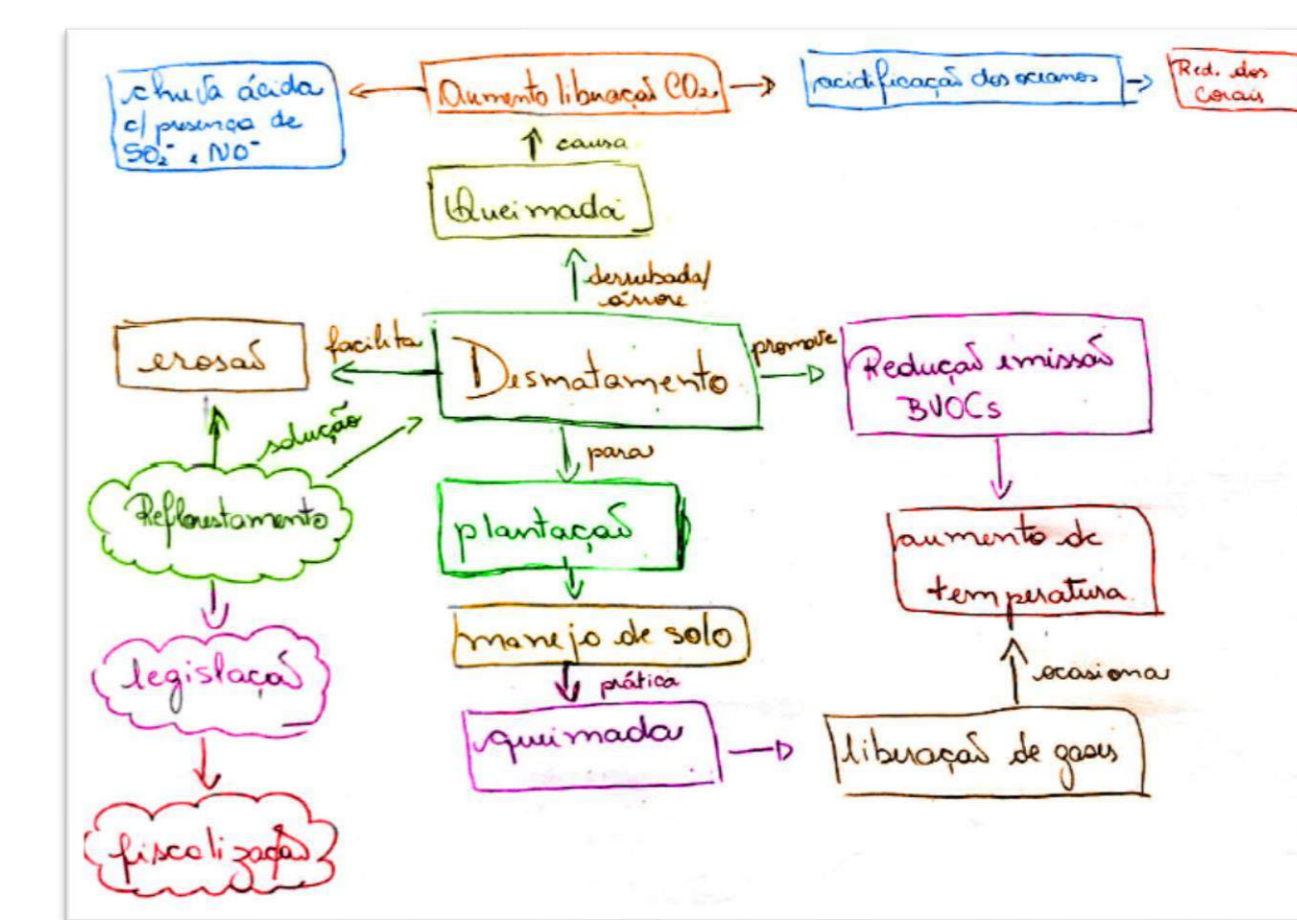 chuva ácida
c/ presença de
SO₂⁻ e NO⁻
Aumento liberação CO₂
acidificação dos oceanos
Red. dos
Corais
causa
Queimada
derrubada/
árvore
erosão
facilita
Desmatamento
promove
Redução emissão
BVOCs
solução
para
Reflorestamento
plantação
aumento de
temperatura
manejo de solo
legislação
prática
ocasiona
queimada
liberação de gases
fiscalização